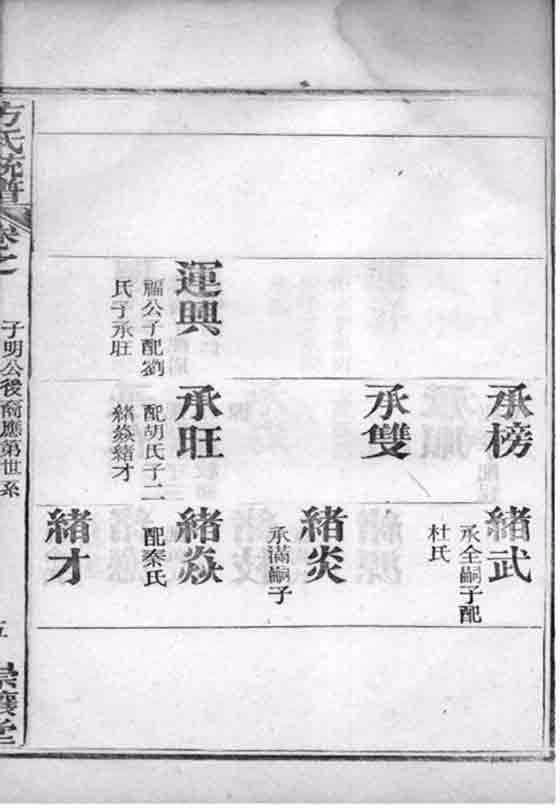 承榜
承雙
運興
福公子配劉
氏子承旺
承旺
配胡氏子二
緒焱緒才
緒武
承全嗣子配
杜氏
緒炎
承滿嗣子
緒焱
配秦氏
緒才
方氏統譜
卷之
子明公後裔應第世系
五
崇讓堂